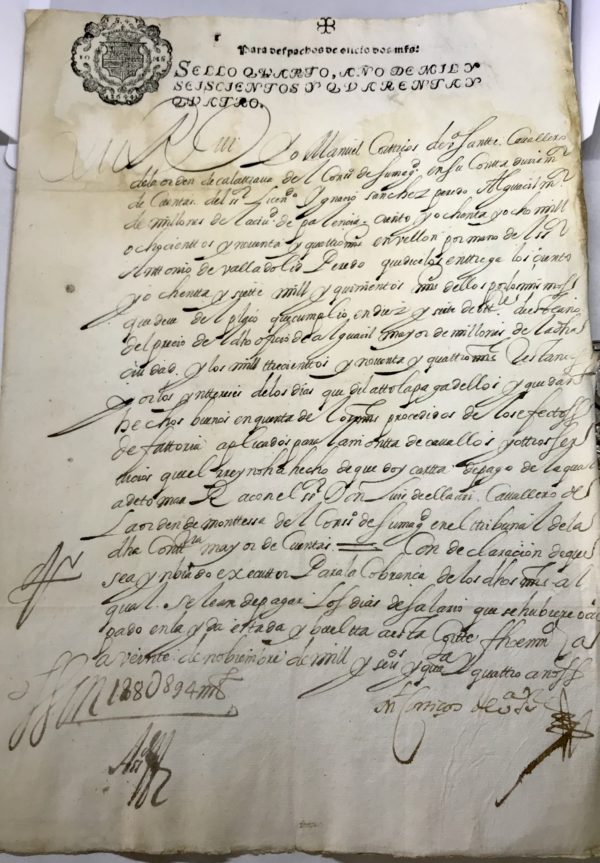 Para despachos de oficio dos mrs:
SELLO QVARTO, AÑO DE MIL Y
SEISCIENTOS Y QVARENTA Y
QVATRO.
Yo Manuel Cortizos de Cavallero
de la orden de calatrava del Consº de su magd en su Contaduria mor
de Cuentas del sr Licendo Ygnacio sanchez peredo Alguacil mor
de millones de la ciud de palencia ciento y ochenta y ocho mill
ochocientos y noventa y quattro mrs en vellon por mano de
Anttonio de valladolid Peredo que dice los enttrega los ciento
y ochentta y siette mill y quinientos mrs dellos por los mismos
que deve del plaço que cumplio en diez y siete de deste año
del precio del dho oficio de alguacil mayor de millones de la dha
ciudad. y los mill trecientos y noventa y quattro mrs restantes
por los ynttereses de los dias que dilatto la paga dellos y quedan
hechos buenos en quenta de procedidos de los efectos
de fattoria aplicados para la montta de cavallos y ottros ser
vicios que el reyno ha hecho de que doy cartta de pago de la qual
a de tomar Raçon el sr Don Luis de Cavallero de
La orden de monttessa del Consº de su magd en el tribunal de la
dha Conttra mayor de Cuentas. Con declaracion de que
sea y no ido executtor Para la Cobrança de los dhos mrs al
qual se le an de pagar Los dias de salario que se hubiere ocu
pado en la yda estada y buelta a esta Cortte fha en
a veinte de nobiembre de mill y seisº y quarta y quattro años
188U894 mrs
M Cortiços de